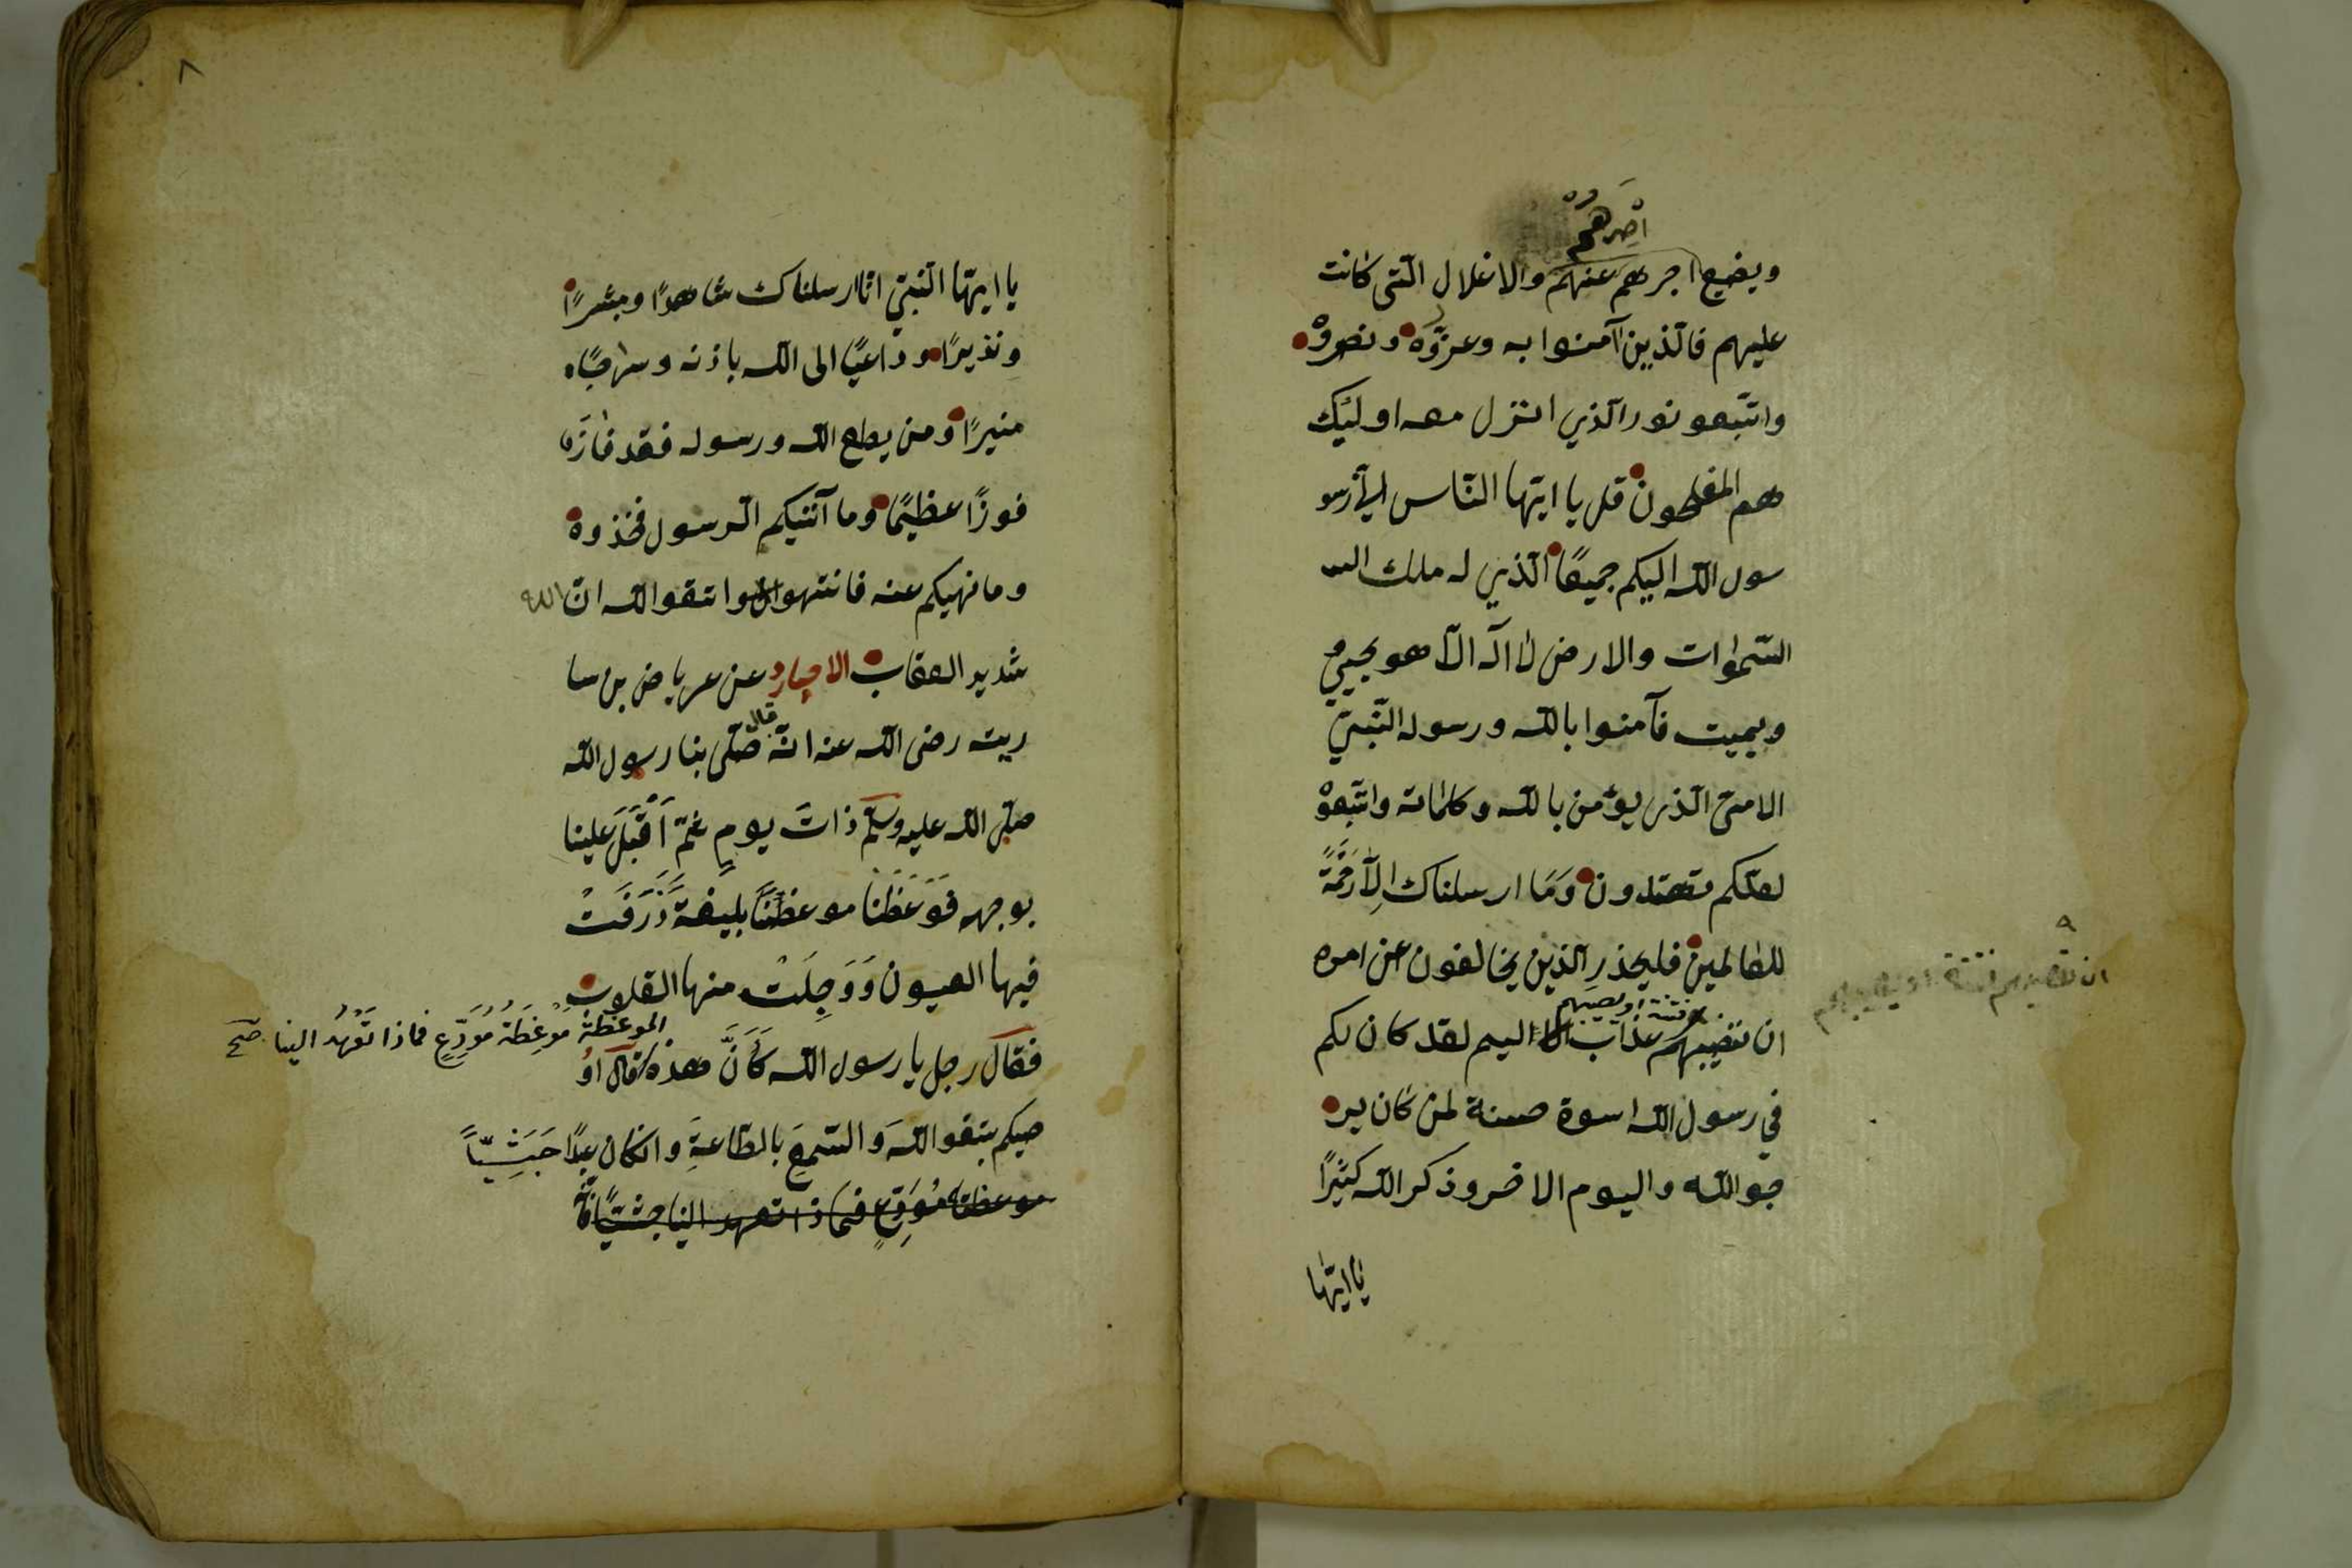 اصرهم
ويضع اجرهم عنهم والاغلال الّتى كانت
عليهم فالّذين آمنوا به وعزّروه ونصروه
واتّبعو نور الّذي انزل معه اولئك
هم المفلحون قل يا ايّها النّاس انّى رسو
سول اللّه اليكم جميعًا الّذي له ملك السـ
السّمٰوات والارض لا اله الّا هو يحيي
ويميت فآمنوا باللّه ورسوله النّبىّ
الامىّ الّذى يؤمن باللّه وكلماته واتّبعوْ
لعلّكم تهتدون وَمَا ارسلناك اِلّا رَحْمَةً
للعالمين فليحذر الّذين يخالفون عن امره
فتنة او يصيبهم
ان تصيبهم عذاب اليم لقد كان لكم
ان تصيبهم فتنة او يصيبهم
في رسول اللّه اسوة حسنة لمن كان ير
جو اللّه واليوم الاخر وذكر اللّه كثيرًا
يا ايّها
٨
يا ايّها النّبىّ انّا ارسلناك شاهدًا ومبشرًا
ونذيرًا وداعيًا الى اللّه باذنه وسراجًا
منيرًا ومن يطع اللّه ورسوله فقد فازَ
فوزًا عظيمًا وما آتٰيكم الرّسول فخذوه
وما نهيكم عنه فانتهوا واتقوا اللّه انّ الله
شديد العقاب الاخبار عن عرباض بن سا
ريته رضى اللّه عنه انّه قال صلّى بنا رسول اللّه
صلّى اللّه عليه وسلّم ذاتَ يومٍ ثمّ اَقْبَلَ علينا
بوجهه فَوَعَظَنا موعظتًا بليغة ذَرَفَتْ
فيها العيون وَوَجِلَتْ منها القلوب
الموعظةَ مَوْعِظَةُ مُوَدِّعٍ فماذا تَعْهَدُ الينا صح
فقالَ رجل يا رسول اللّه كَاَنَّ هذه قال اوُ
صيكم بتقوا اللّهَ والسّمعَ بالطّاعةِ وانكان عبدًا حَبَشِيًّا
موعظة مُوَدِّعٍ فماذا تعهد الينا حبشيًّا فانّه